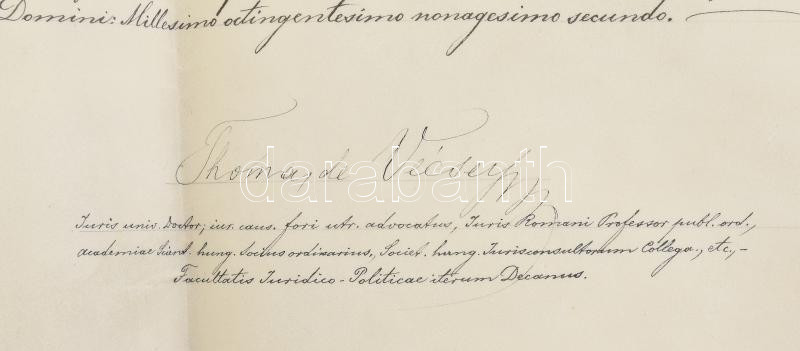 Domini: Millesimo octingentesimo nonagesimo secundo.
Thomas de Vécsey
darabanth
Juris univ. Doctor; iur. caus. fori utr. advocatus, Juris Romani Professor publ. ord.,
academiae Scient. hung. Socius ordinarius, Societ. hung. Jurisconsultorum Collega., etc., –
Facultatis Juridico-Politicae iterum Decanus.